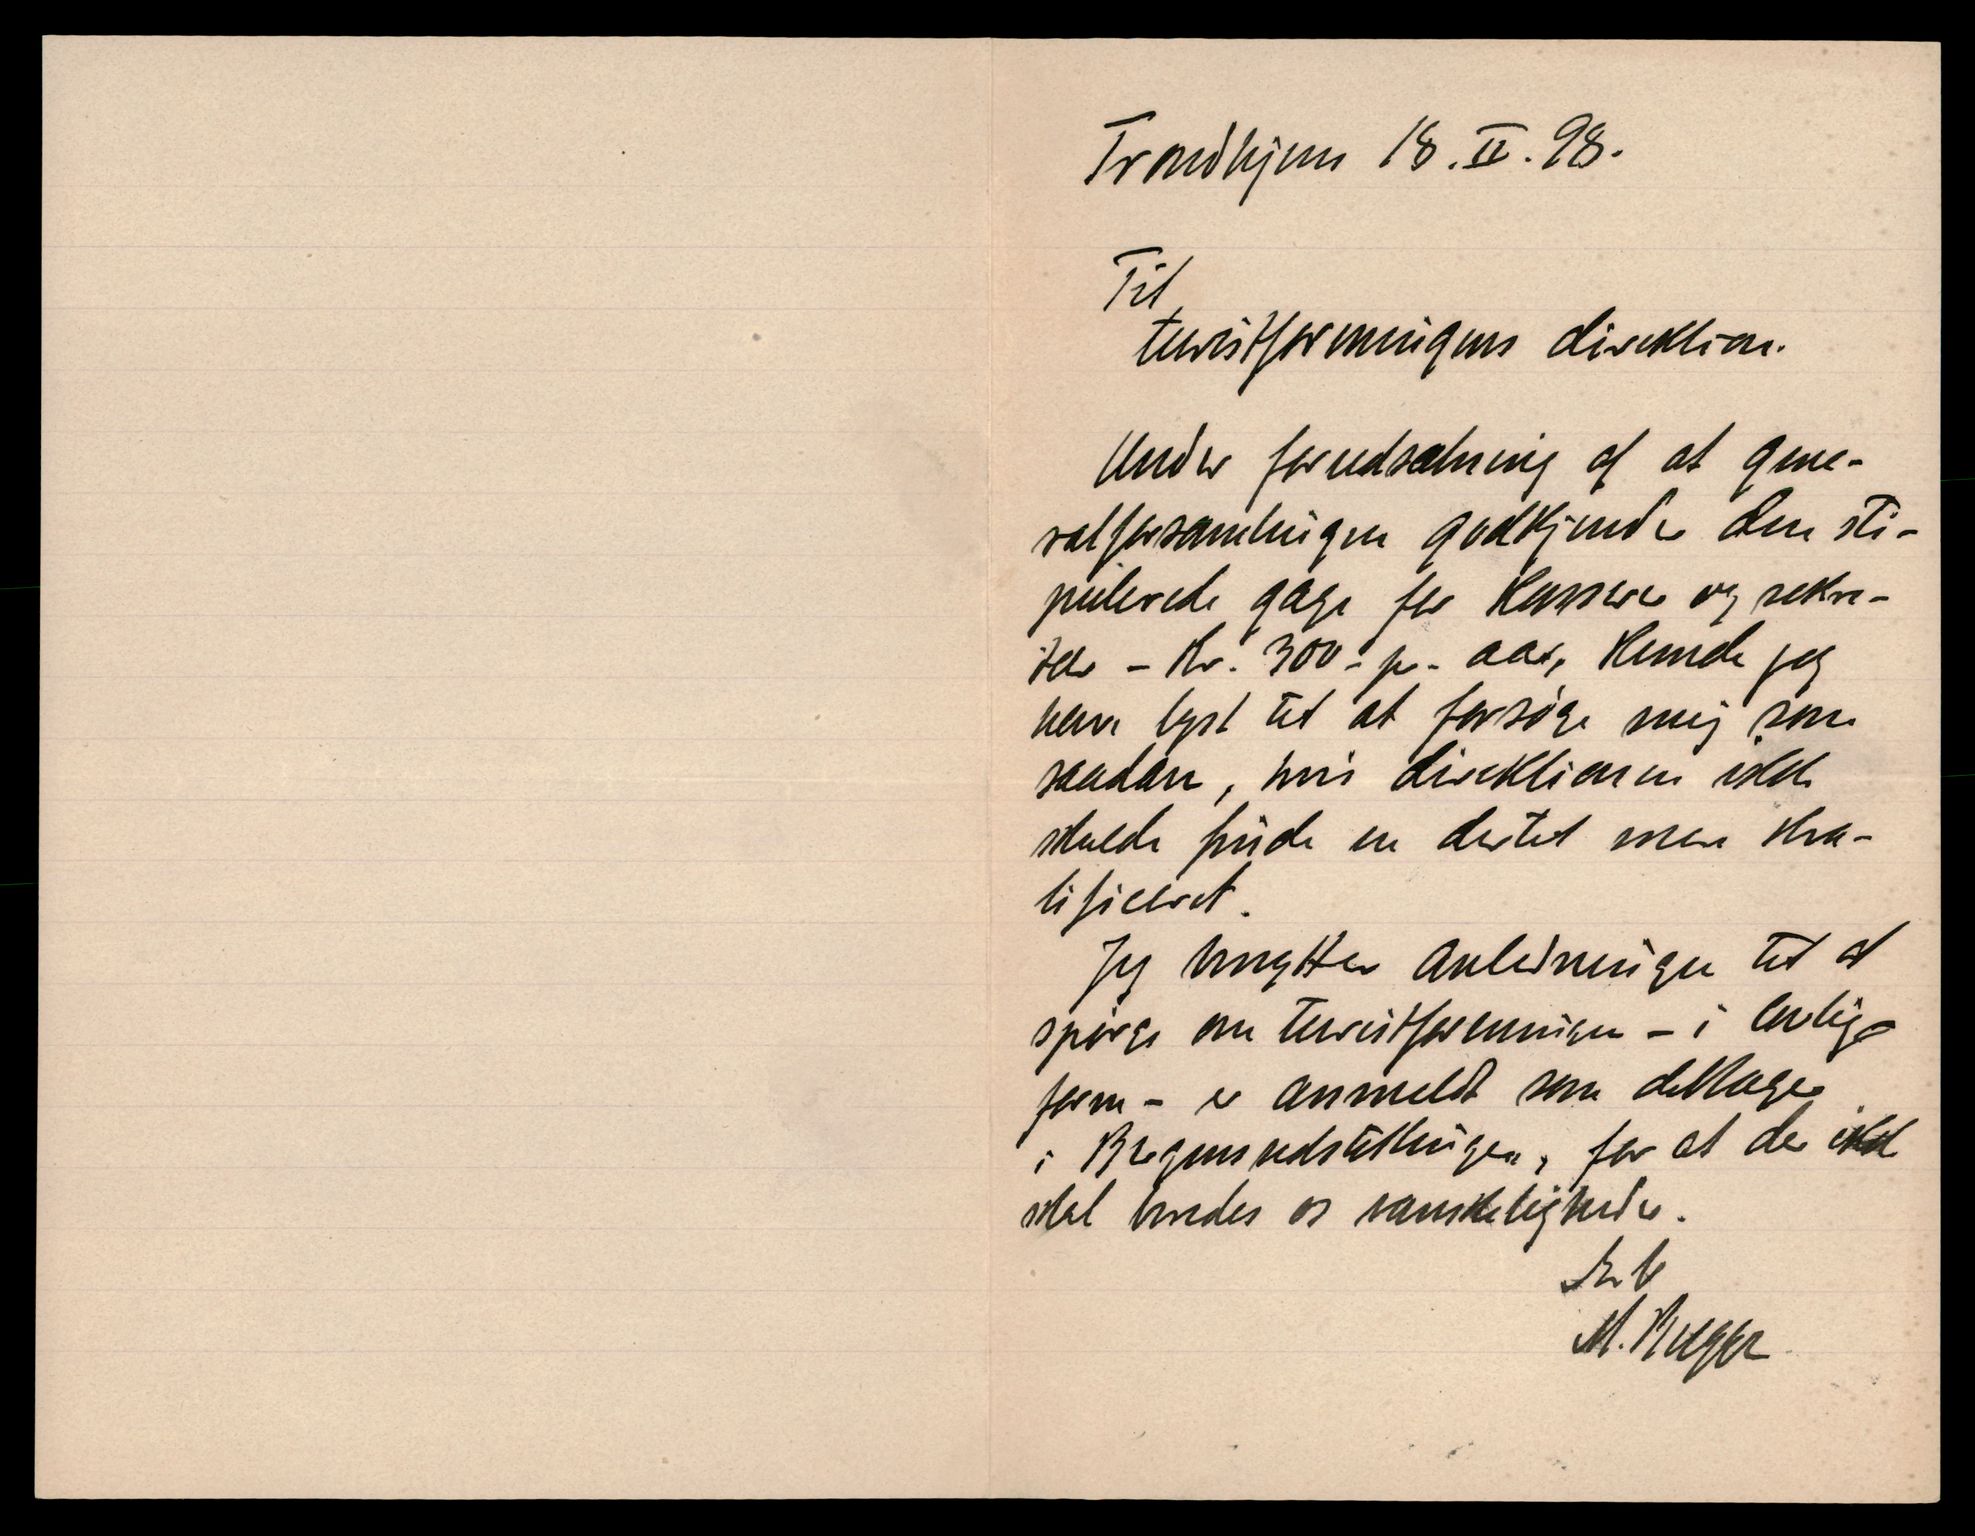 Trondhjem 18. II. 98.
Til
turistforeningens direktion.
Under forudsætning af at gene-
ralforsamlingen godkjender den sti-
pulerede gage for kasserer og sekre-
tær - Kr. 300 - pr. aar, kunde jeg
have lyst til at forsøge mig som
saadan, hvis direktionen ikke
skulde finde en dertil mere kva-
lificeret.
Jeg benytter anledningen til at
spørge om turistforeningen - i lovlig
form - er anmeldt som deltager
i Bergensudstillingen, for at der ikke
skal voldes os vanskeligheder.
Ærb
M.